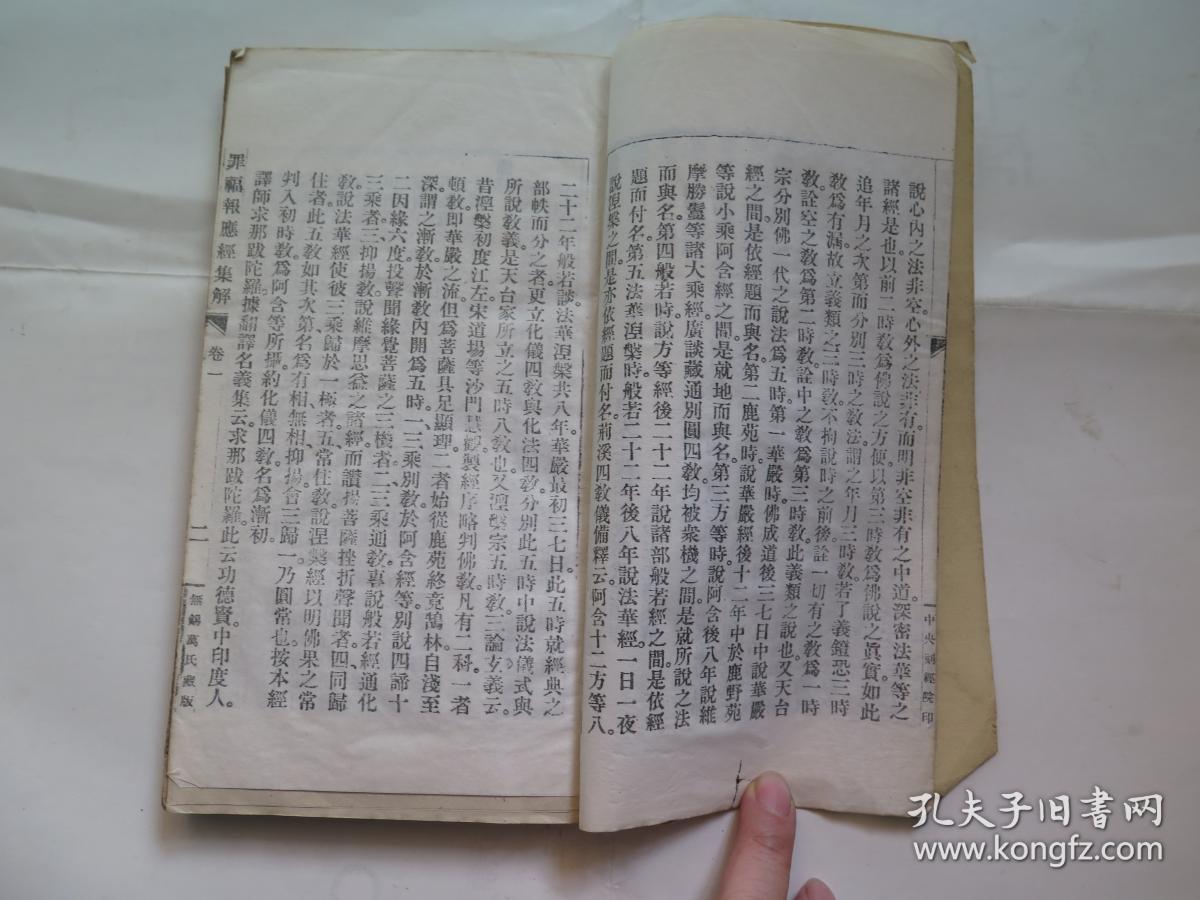 中央刻經院印
說心內之法非空。心外之法非有而明非空非有之中道深密法華等之
諸經是也以前二時教爲佛說之方便以第三時教爲佛說之眞實如此
追年月之次第而分別三時之教法謂之年月三時教若了義鐙恐三時
教爲有漏故立義類之三時教不拘說時之前後詮一切有之教爲一時
教詮空之教爲第二時教詮中之教爲第三時教此義類之說也又天台
宗分別佛一代之說法爲五時第一華嚴時佛成道後三七日中說華嚴
經之間是依經題而與名第二鹿苑時說華嚴經後十二年中於鹿野苑
等說小乘阿含經之間是就地而與名第三方等時說阿含後八年說維
摩勝鬘等諸大乘經廣談藏通別圓四教均被衆機之間是就所說之法
而與名第四般若時說方等經後二十二年說諸部般若經之間是依經
題而付名第五法華涅槃時般若二十二年後八年說法華經一日一夜
說涅槃之間是亦依經題而付名荊溪四教儀備釋云阿含十二方等八。
二十二年般若談法華涅槃共八年華嚴最初三七日此五時就經典之
部帙而分之者更立化儀四教與化法四教分別此五時中說法儀式與
所說教義是天台家所立之五時八教也又涅槃宗五時教三論玄義云。
昔涅槃初度江左宋道場寺沙門慧觀製經序略判佛教凡有二科一者
頓教即華嚴之流但爲菩薩具足顯理二者始從鹿苑終竟鵠林自淺至
深謂之漸教於漸教內開爲五時一三乘別教於阿含經等別說四諦十
二因緣六度投聲聞緣覺菩薩之三機者二三乘通教專說般若經通化
三乘者三抑揚教說維摩思益之諸經而讚揚菩薩挫折聲聞者四同歸
教說法華經使彼三乘歸於一極者五常住教說涅槃經以明佛果之常
住者此五教如其次第名爲有相無相抑揚會三歸一乃圓常也按本經
判入初時教爲阿含等所攝約化儀四教名爲漸初
譯師求那跋陀羅據翻譯名義集云求那跋陀羅此云功德賢中印度人。
罪福報應經集解 卷一 二 無錫萬氏藏版
孔夫子旧書网
www.kongfz.com